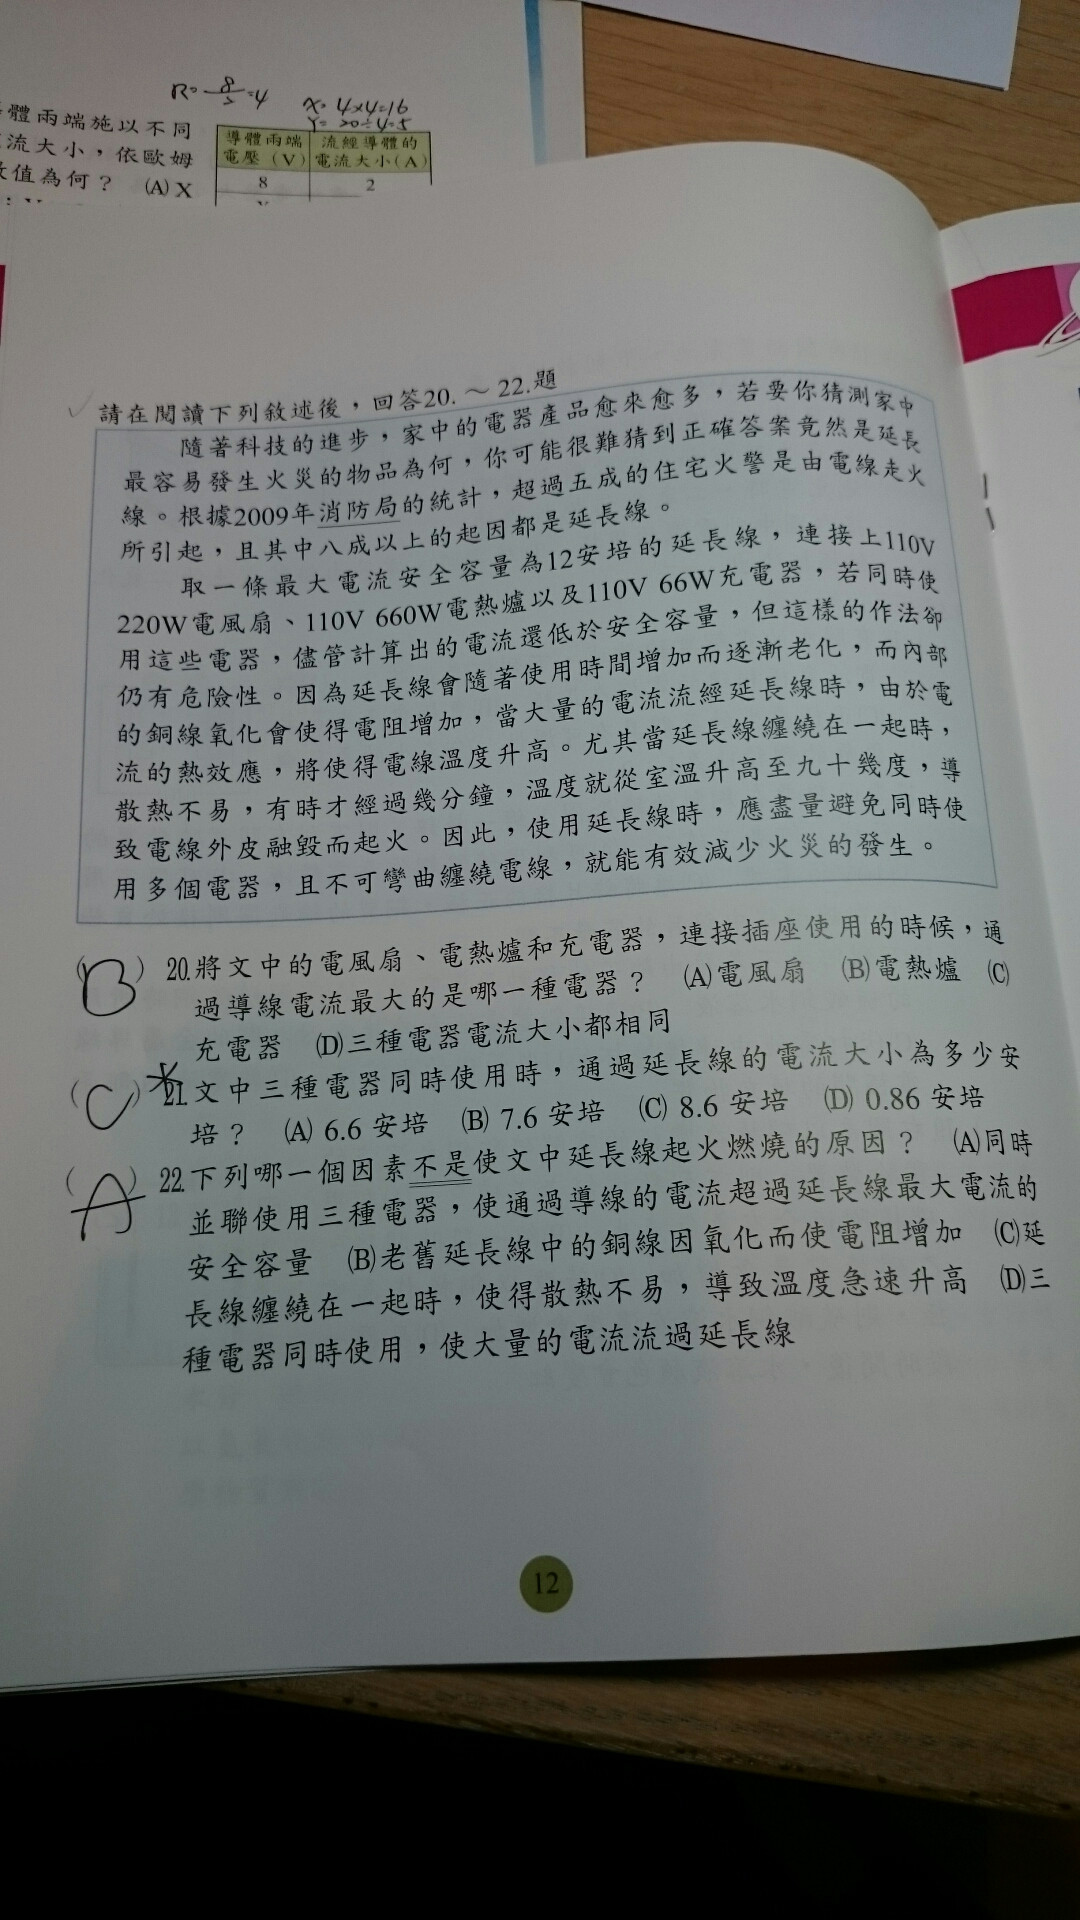 R= 8/2 =4
X= 4×4=16
Y= 20÷4=5
體兩端施以不同
流大小，依歐姆
值為何？ (A) X
導體兩端 流經導體的
電壓（V） 電流大小（A）
8 2
請在閱讀下列敘述後，回答20. ～ 22.題
隨著科技的進步，家中的電器產品愈來愈多，若要你猜測家中
最容易發生火災的物品為何，你可能很難猜到正確答案竟然是延長
線。根據2009年消防局的統計，超過五成的住宅火警是由電線走火
所引起，且其中八成以上的起因都是延長線。
取一條最大電流安全容量為12安培的延長線，連接上110V
220W電風扇、110V 660W電熱爐以及110V 66W充電器，若同時使
用這些電器，儘管計算出的電流還低於安全容量，但這樣的作法卻
仍有危險性。因為延長線會隨著使用時間增加而逐漸老化，而內部
的銅線氧化會使得電阻增加，當大量的電流流經延長線時，由於電
流的熱效應，將使得電線溫度升高。尤其當延長線纏繞在一起時，
散熱不易，有時才經過幾分鐘，溫度就從室溫升高至九十幾度，導
致電線外皮融毀而起火。因此，使用延長線時，應盡量避免同時使
用多個電器，且不可彎曲纏繞電線，就能有效減少火災的發生。
（B）20.將文中的電風扇、電熱爐和充電器，連接插座使用的時候，通
過導線電流最大的是哪一種電器？ (A)電風扇 (B)電熱爐 (C)
充電器 (D)三種電器電流大小都相同
（C）*21.文中三種電器同時使用時，通過延長線的電流大小為多少安
培？ (A) 6.6 安培 (B) 7.6 安培 (C) 8.6 安培 (D) 0.86 安培
（A）22.下列哪一個因素不是使文中延長線起火燃燒的原因？ (A)同時
並聯使用三種電器，使通過導線的電流超過延長線最大電流的
安全容量 (B)老舊延長線中的銅線因氧化而使電阻增加 (C)延
長線纏繞在一起時，使得散熱不易，導致溫度急速升高 (D)三
種電器同時使用，使大量的電流流過延長線
12